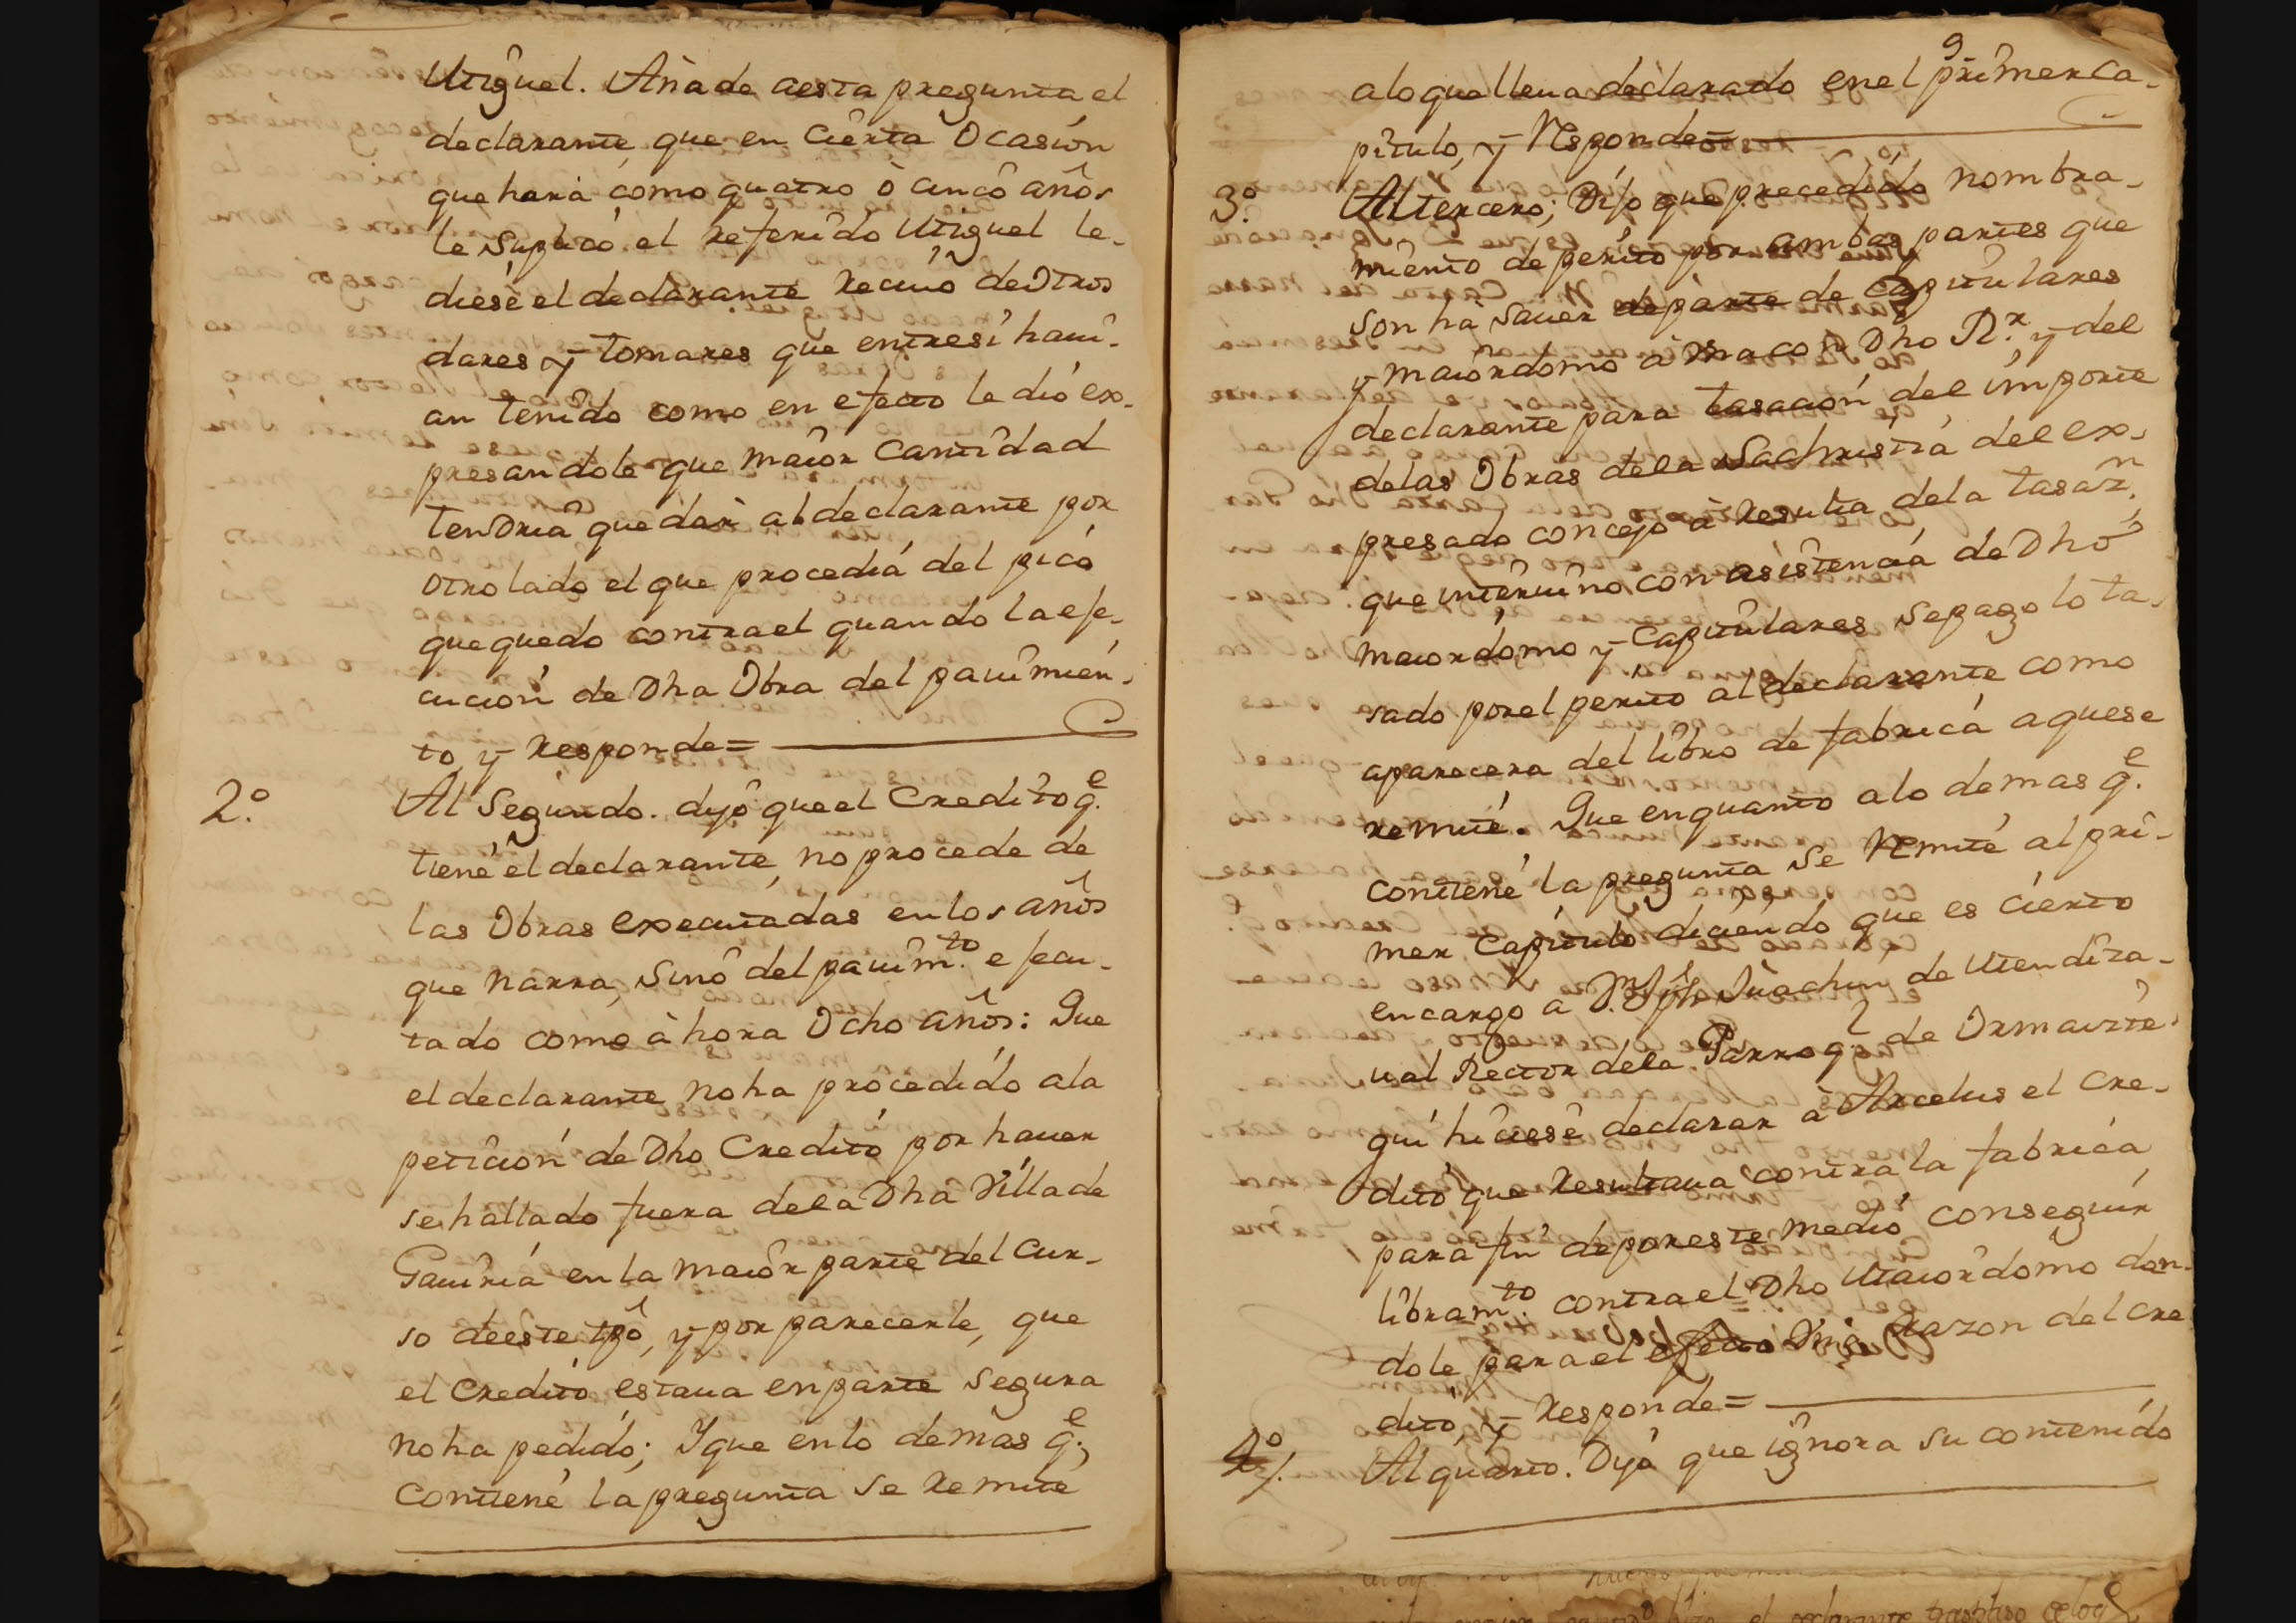 Miguel. Añade aesta pregunta el
declarante, que en Cierta Ocasion
que hara como quatro ò cinco años
le Suplicò el referido Miguel le-
diese el declarante recivo de Otros
dares y tomares que entresi havi-
an tenido como en efecto le dió ex-
presandole que maior Cantidad
tendria que dar al declarante por
otro lado el que procediá del picó
que quedo contra el quando la efe-
cucion de Dha Obra del pavimien-
to, y responde=
2.º Al Segundo. dijo que el Credito q.e
tiene el declarante, no procede de
las Obras executadas en los años
que narra, Sinó del pavim.to efecu-
tado como à hora Ocho años: Que
el declarante no ha procedido ala
peticion de Dho Credito por haver
se hallado fuera dela Dha Villa de
Gaviria en la maior parte del Cur-
so deeste tpô, y por parecerle, que
el Credito estava en parte Segura
no ha pedido; Y que en lo demas q.e,
Contiene la pregunta se remite
9
alo que lleva declarado en el primer Ca-
pitulo, y Responde=
3.º Al tercero; Dijo que precedido nombra-
miento de perito por ambas partes que
son hà Saver de parte de Capitulares
y maiordomo à una con Dho R.r y del
declarante para tasacion del importe
delas Obras dela Sachristia del ex-
presado concejo à resulta dela tasaz.n
que intervino con asistencia de Dhô
maiordomo y Capitulares Se pago lo ta-
sado por el perito al declarante como
aparecera del libro de fabrica a que se
remite. Que en quanto alo demas q.e
contiene la pregunta se Remite al pri-
mer Capitulo diciendo que es Cierto
encargo a D.n Jph Juachin de Mendiza-
val Rector dela Parroq.l de Ormaizte-
gui hiciese declarar à Arcelus el Cre-
dito que resultava contra la fabrica
para fin de por este medio conseguir
libram.to contra el Dho Maiordomo dan-
dole para el efecto Una razon del Cre
dito, y responde=
4º/. Al quarto. Dijo que ignora su contenido